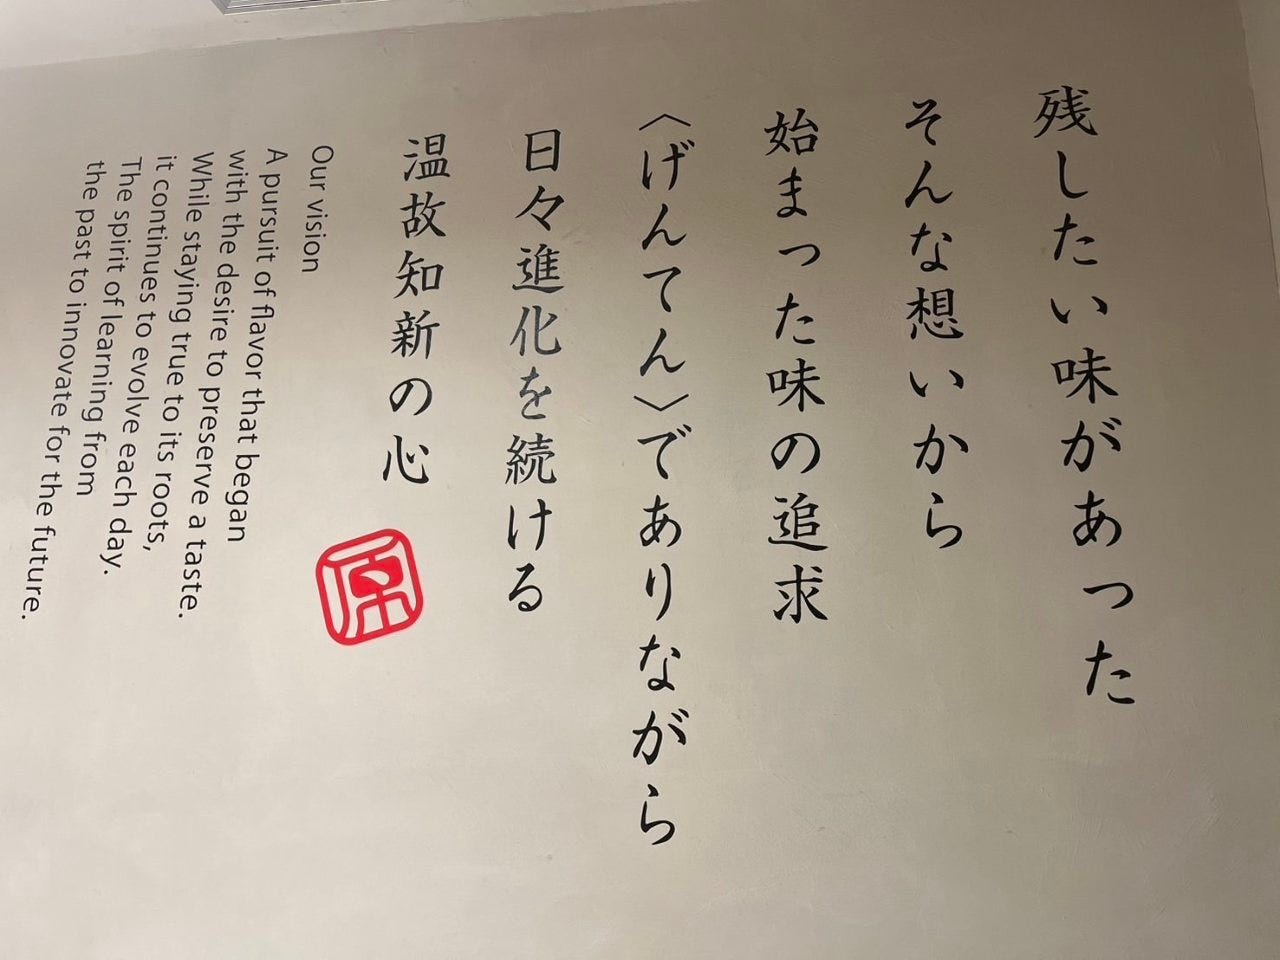 残したい味があった
そんな想いから
始まった味の追求
〈げんてん〉でありながら
日々進化を続ける
温故知新の心
原
Our vision
A pursuit of flavor that began
with the desire to preserve a taste.
While staying true to its roots,
it continues to evolve each day.
The spirit of learning from
the past to innovate for the future.